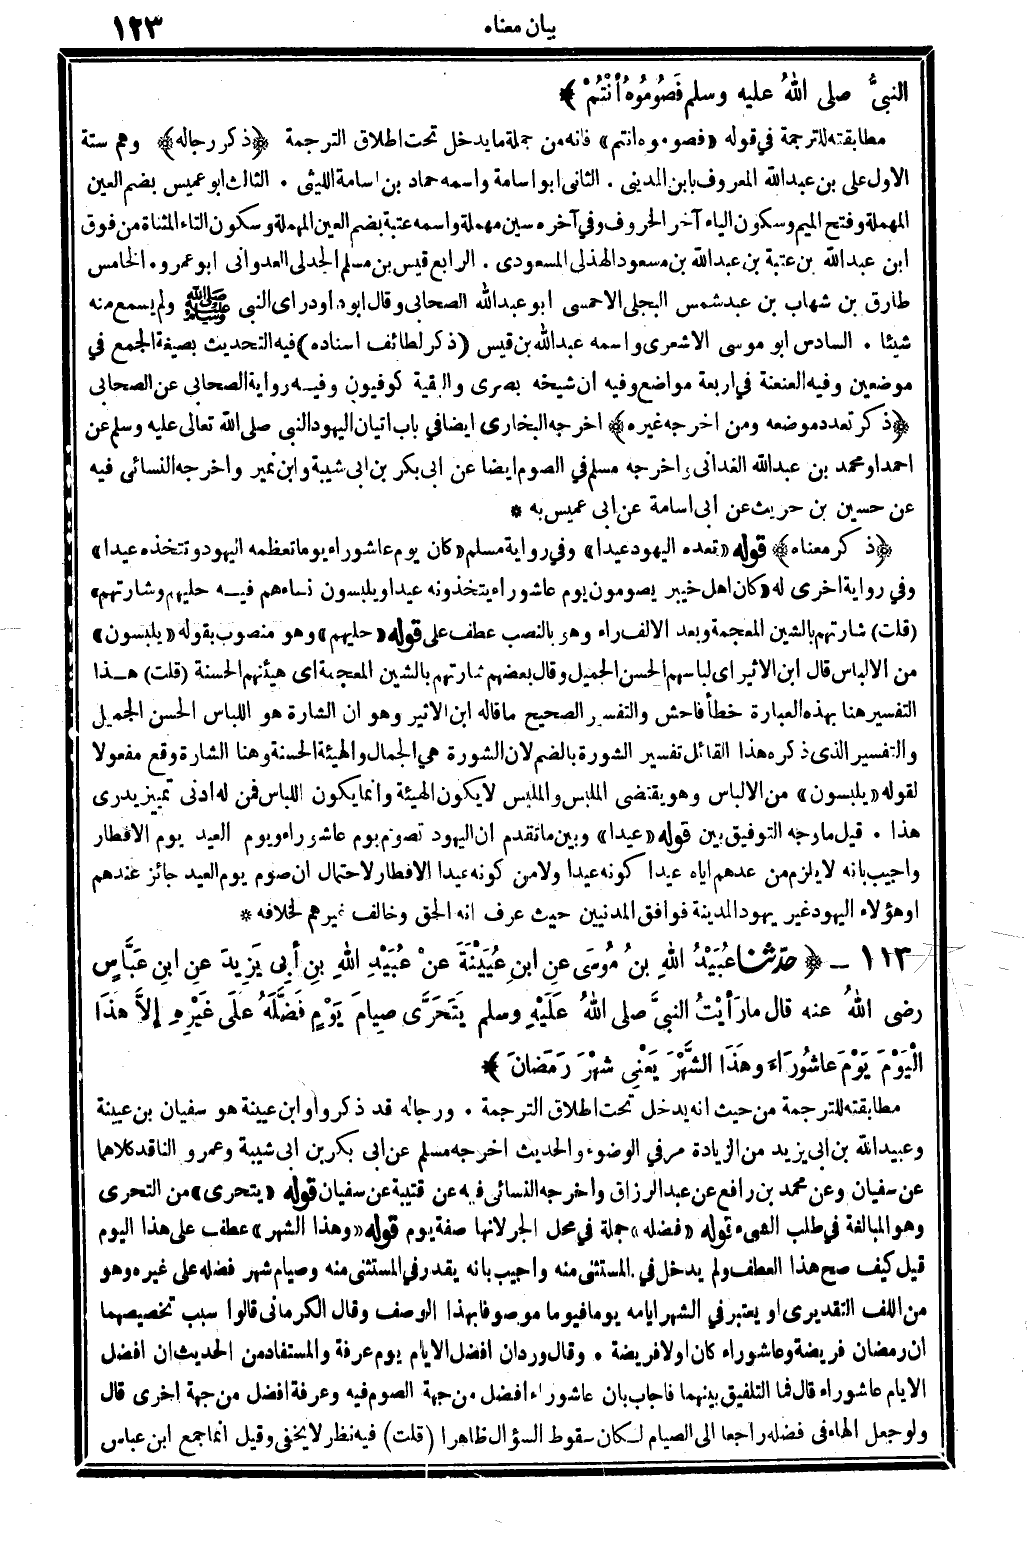 بيان معناه ١٢٣
النبيُّ صلى اللهُ عليه وسلم فَصُومُوهُ أنْتُمْ ﴾
مطابقته للترجمة في قوله «فصوموه انتم» فانه من جملة ما يدخل تحت اطلاق الترجمة ﴿ذكر رجاله﴾ وهم ستة
الاول على بن عبدالله المعروف بابن المدينى . الثانى ابو اسامة واسمه حماد بن اسامة الليثى . الثالث ابو عميس بضم العين
المهملة وفتح الميم وسكون الياء آخر الحروف وفي آخره سين مهملة واسمه عتبة بضم العين المهملة وسكون التاء المثناة من فوق
ابن عبدالله بن عتبة بن عبدالله بن مسعود الهذلى المسعودى . الرابع قيس بن مسلم الجدلى العدوانى ابو عمرو. الخامس
طارق بن شهاب بن عبدشمس البجلى الاحمسى ابو عبدالله الصحابى وقال ابوداود راى النبى ﷺ ولم يسمع منه
شيئا . السادس ابو موسى الاشعرى واسمه عبدالله بن قيس (ذكر لطائف اسناده) فيه التحديث بصيغة الجمع في
موضعين وفيه العنعنة في اربعة مواضع وفيه ان شيخه بصرى والبقية كوفيون وفيه رواية الصحابى عن الصحابى
﴿ذكر تعدد موضعه ومن اخرجه غيره﴾ اخرجه البخارى ايضا في باب اتيان اليهود النبى صلى الله تعالى عليه وسلم عن
احمد او محمد بن عبدالله الغدانى واخرجه مسلم في الصوم ايضا عن ابى بكر بن ابى شيبة وابن نمير واخرجه النسائى فيه
عن حسين بن حريث عن ابى اسامة عن ابى عميس به *
﴿ذكر معناه﴾ قوله «تعده اليهود عيدا» وفي رواية مسلم «كان يوم عاشوراء يوما تعظمه اليهود وتتخذه عيدا»
وفي رواية اخرى له «كان اهل خيبر يصومون يوم عاشوراء يتخذونه عيدا ويلبسون نساءهم فيه حليهم وشارتهم»
(قلت) شارتهم بالشين المعجمة وبعد الالف راء وهو بالنصب عطف على قوله «حليهم» وهو منصوب بقوله «يلبسون»
من الالباس قال ابن الاثير اى لباسهم الحسن الجميل وقال بعضهم شارتهم بالشين المعجمة اى هيئتهم الحسنة (قلت) هذا
التفسير هنا بهذه العبارة خطأ فاحش والتفسير الصحيح ما قاله ابن الاثير وهو ان الشارة هو اللباس الحسن الجميل
والتفسير الذى ذكره هذا القائل تفسير الشورة بالضم لان الشورة هي الجمال والهيئة الحسنة وهنا الشارة وقع مفعولا
لقوله «يلبسون» من الالباس وهو يقتضى الملبس والملبس لا يكون الهيئة وانما يكون اللباس فمن له ادنى تمييز يدرى
هذا . قيل ما وجه التوفيق بين قوله «عيدا» وبين ما تقدم ان اليهود تصوم يوم عاشوراء ويوم العيد يوم الافطار
واجيب بانه لا يلزم من عدهم اياه عيدا كونه عيدا ولا من كونه عيدا الافطار لاحتمال ان صوم يوم العيد جائز عندهم
او هؤلاء اليهود غير يهود المدينة فوافق المدنيين حيث عرف انه الحق وخالف غيرهم لخلافه *
١١٣ - ﴿ حدثنا عُبَيْدُ اللهِ بنُ مُوسَى عنِ ابنِ عُيَيْنَةَ عنْ عُبَيْدِ اللهِ بنِ أبِي يَزِيدَ عنِ ابنِ عَبَّاسٍ
رضى اللهُ عنه قال ما رَأيْتُ النبيَّ صلى اللهُ عَلَيْهِ وسلم يَتَحَرَّى صِيامَ يَوْمٍ فَضَّلَهُ علَى غَيْرِهِ إلاَّ هذَا
الْيَوْمَ يَوْمَ عاشُورَاءَ وهَذَا الشَّهْرَ يَعْنِى شهْرَ رَمَضانَ ﴾
مطابقته للترجمة من حيث انه يدخل تحت اطلاق الترجمة . ورجاله قد ذكروا وابن عيينة هو سفيان بن عيينة
وعبيدالله بن ابى يزيد من الزيادة مر في الوضوء والحديث اخرجه مسلم عن ابى بكر بن ابى شيبة وعمرو الناقد كلاهما
عن سفيان وعن محمد بن رافع عن عبدالرزاق واخرجه النسائى فيه عن قتيبة عن سفيان قوله «يتحرى» من التحرى
وهو المبالغة في طلب الشىء قوله «فضله» جملة في محل الجر لانها صفة يوم قوله «وهذا الشهر» عطف على هذا اليوم
قيل كيف صح هذا العطف ولم يدخل في المستثنى منه واجيب بانه يقدر في المستثنى منه وصيام شهر فضله على غيره وهو
من اللف التقديرى او يعتبر في الشهر ايامه يوما فيوما موصوفا بهذا الوصف وقال الكرمانى قالوا سبب تخصيصهما
ان رمضان فريضة وعاشوراء كان اولا فريضة . وقال ورد ان افضل الايام يوم عرفة والمستفاد من الحديث ان افضل
الايام عاشوراء قال فما التلفيق بينهما فاجاب بان عاشوراء افضل من جهة الصوم فيه وعرفة افضل من جهة اخرى قال
ولو جعل الهاء في فضله راجعا الى الصيام لكان سقوط السؤال ظاهرا (قلت) فيه نظر لا يخفى وقيل انما جمع ابن عباس